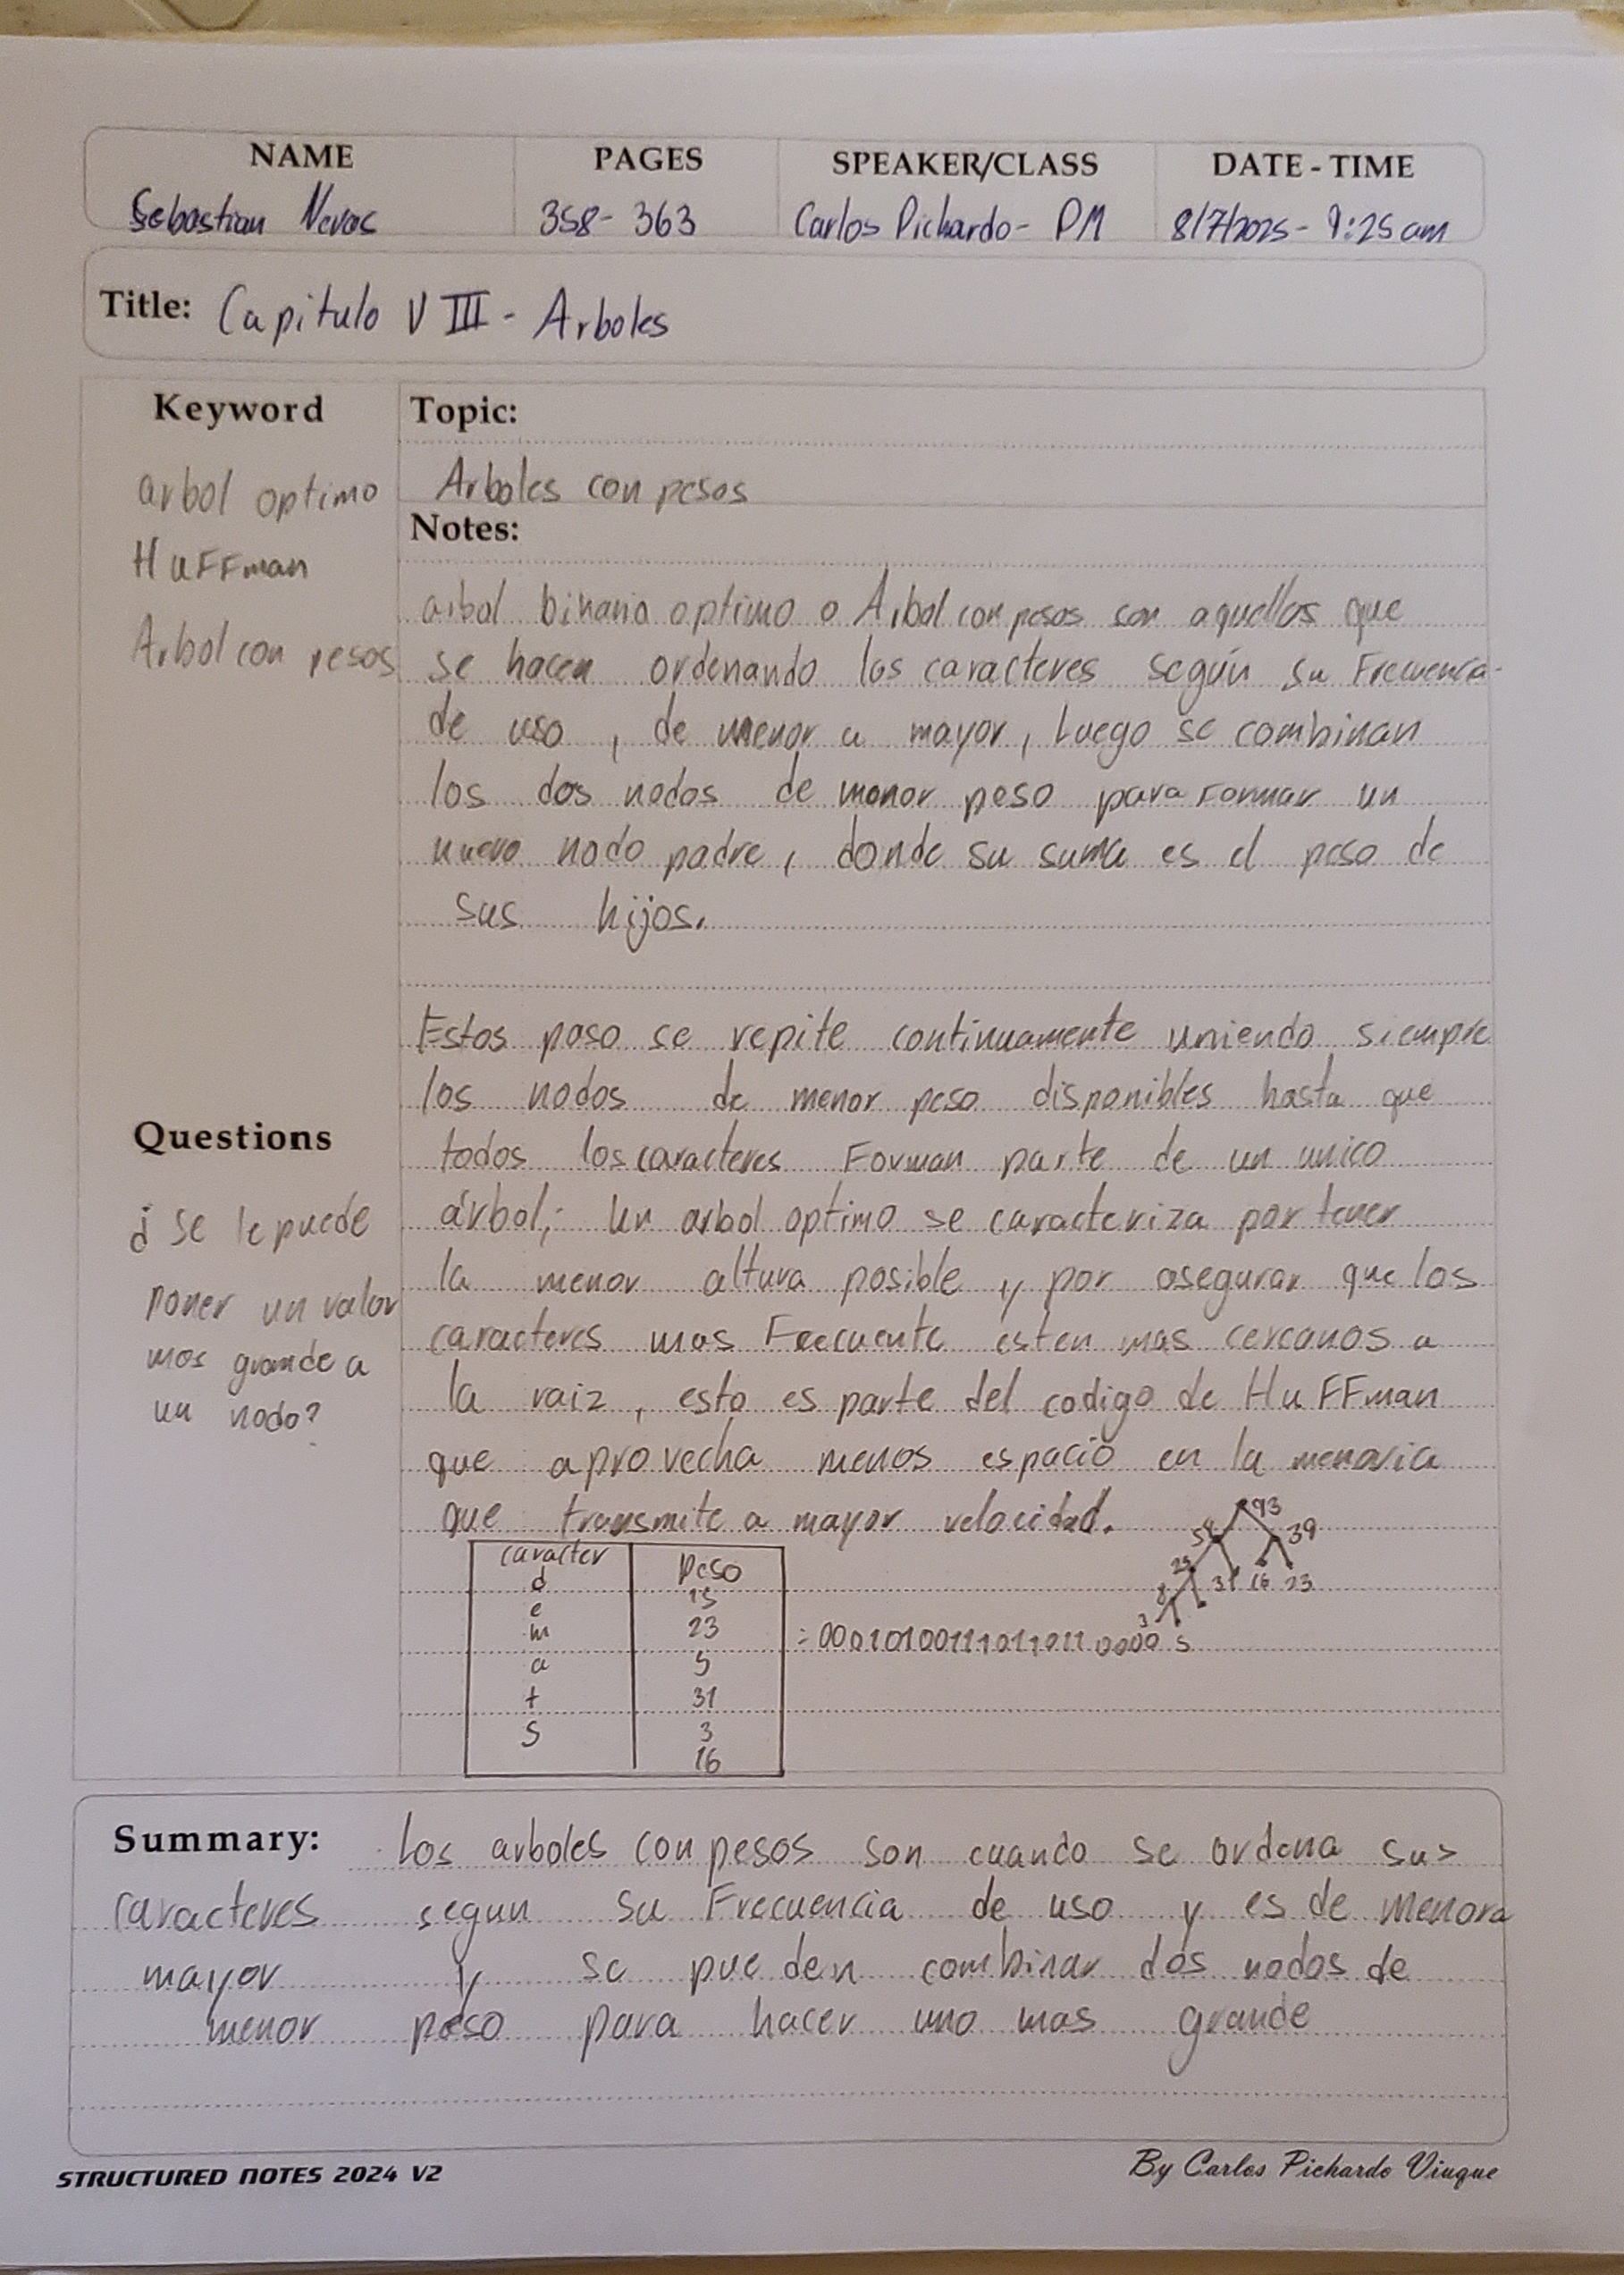 NAME PAGES SPEAKER/CLASS DATE - TIME
Sebastian Nevas 358- 363 Carlos Pichardo- PM 8/7/2025- 9:25am
Title: Capitulo VIII - Arboles
Keyword
arbol optimo
HuFFman
Arbol con pesos
Topic:
Arboles con pesos
Notes:
arbol binario optimo o Arbol con pesos son aquellos que
se hacen ordenando los caracteres según su Frecuencia
de uso, de menor a mayor, Luego se combinan
los dos nodos de menor peso para Formar un
nuevo nodo padre, donde su suma es el peso de
sus hijos.
Estos paso se repite continuamente uniendo siempre
los nodos de menor peso disponibles hasta que
todos los caracteres Forman parte de un unico
árbol; Un arbol optimo se caracteriza por tener
la menor altura posible y por asegurar que los
caracteres mas Frecuente esten mas cercanos a
la raiz, esto es parte del codigo de HuFFman
que aprovecha menos espacio en la memoria
que transmite a mayor velocidad.
Questions
¿ Se le puede
poner un valor
mas grande a
un nodo?
caracter Peso
d 15
e
m 23
a 5
t 31
S 3
16
93
39
31 16 23
8
3
= 000101001110110110000 s
Summary: Los arboles con pesos son cuando se ordena sus
caracteres segun su Frecuencia de uso y es de menor a
mayor y se pueden combinar dos nodos de
menor peso para hacer uno mas grande
STRUCTURED NOTES 2024 V2
By Carlos Pichardo Viuque